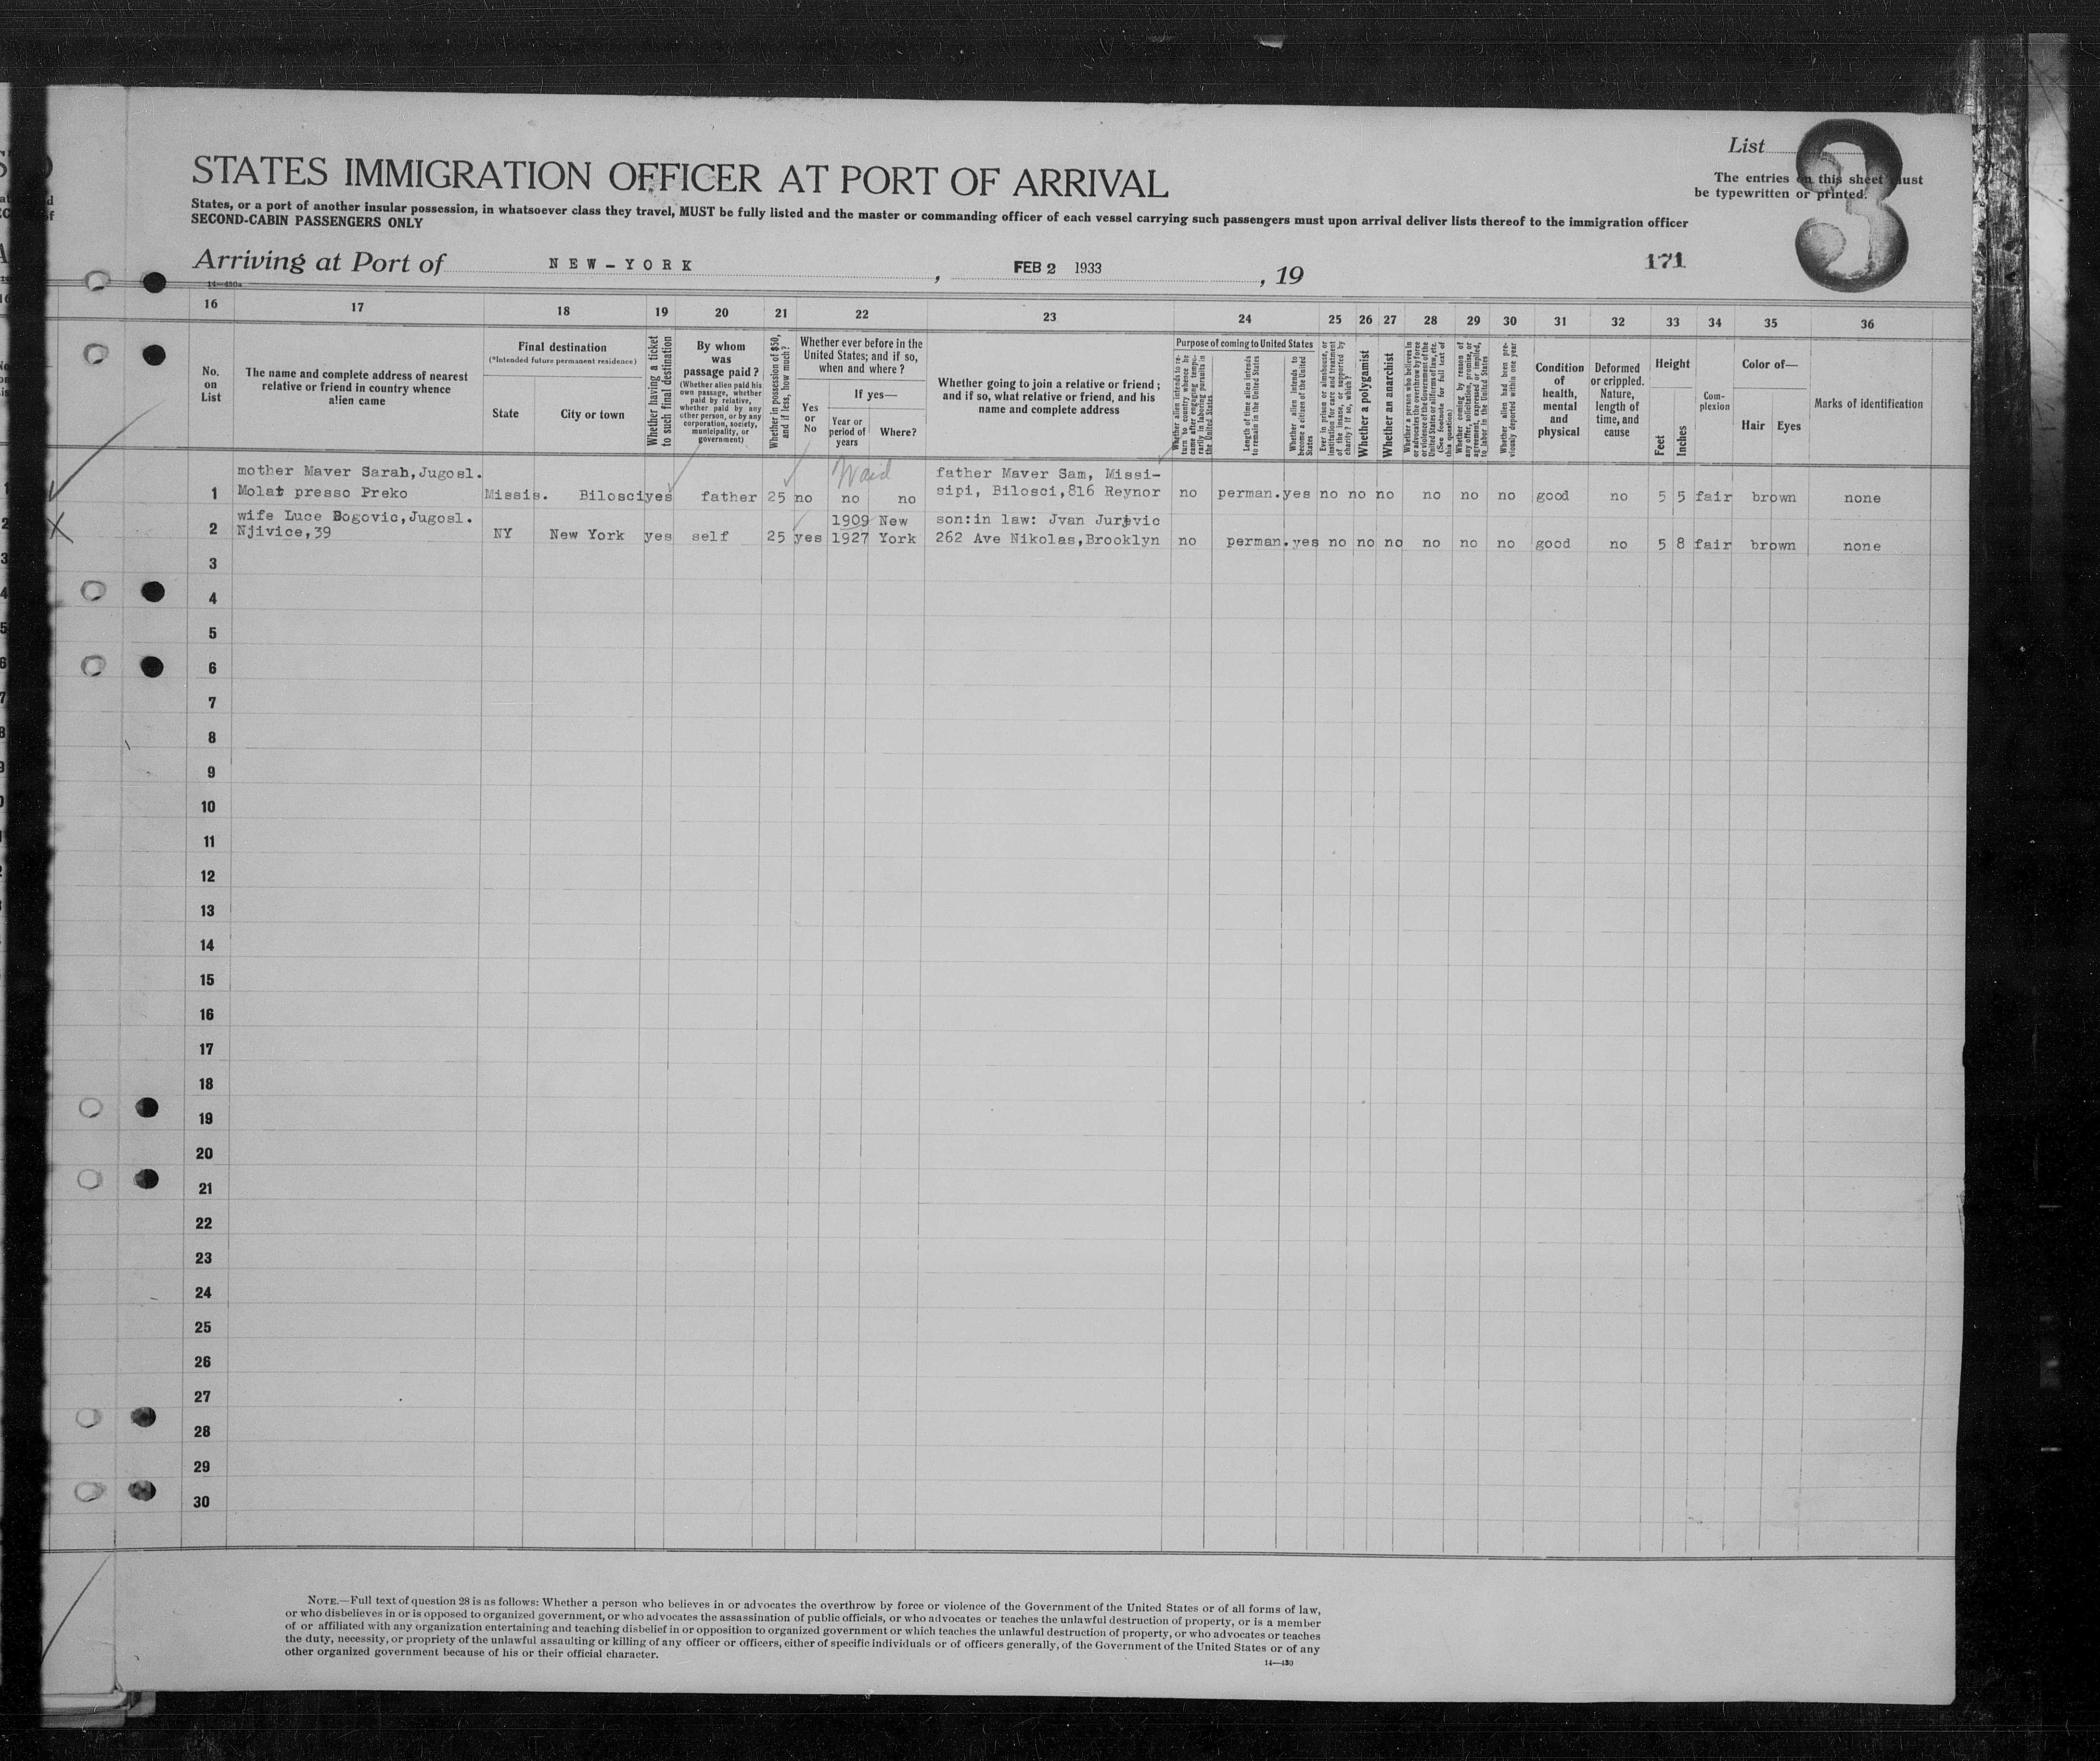 STATES IMMIGRATION OFFICER AT PORT OF ARRIVAL
List
3
The entries on this sheet must
be typewritten or printed.
States, or a port of another insular possession, in whatsoever class they travel, MUST be fully listed and the master or commanding officer of each vessel carrying such passengers must upon arrival deliver lists thereof to the immigration officer
SECOND-CABIN PASSENGERS ONLY
Arriving at Port of NEW-YORK, FEB 2 1933, 19
171
14—430a
16 17 18 19 20 21 22 23 24 25 26 27 28 29 30 31 32 33 34 35 36
No.
on
List
The name and complete address of nearest
relative or friend in country whence
alien came
Final destination
(*Intended future permanent residence)
State
City or town
Whether having a ticket
to such final destination
By whom
was
passage paid?
(Whether alien paid his
own passage, whether
paid by relative,
whether paid by any
other person, or by any
corporation, society,
municipality, or
government)
Whether in possession of $50,
and if less, how much?
Whether ever before in the
United States; and if so,
when and where?
Yes
or
No
If yes—
Year or
period of
years
Where?
Whether going to join a relative or friend;
and if so, what relative or friend, and his
name and complete address
Purpose of coming to United States
Whether alien intends to re-
turn to country whence he
came after engaging tempo-
rarily in laboring pursuits in
the United States
Length of time alien intends
to remain in the United States
Whether alien intends to
become a citizen of the United
States
Ever in prison or almshouse, or
institution for care and treatment
of the insane, or supported by
charity? If so, which?
Whether a polygamist
Whether an anarchist
Whether a person who believes in
or advocates the overthrow by force
or violence of the Government of the
United States or all forms of law, etc.
(See footnote for full text of
this question)
Whether coming by reason of
any offer, solicitation, promise, or
agreement, expressed or implied,
to labor in the United States
Whether alien had been pre-
viously deported within one year
Condition
of
health,
mental
and
physical
Deformed
or crippled.
Nature,
length of
time, and
cause
Height
Feet
Inches
Com-
plexion
Color of—
Hair Eyes
Marks of identification
Waid
mother Maver Sarah,Jugosl. father Maver Sam, Missi-
1 Molat presso Preko Missis. Bilosci yes father 25 no no no sipi, Bilosci,816 Reynor no perman. yes no no no no no no good no 5 5 fair brown none
wife Luce Bogovic,Jugosl. 1909 New son:in law: Jvan Jurjvic
2 Njivice,39 NY New York yes self 25 yes 1927 York 262 Ave Nikolas,Brooklyn no perman. yes no no no no no no good no 5 8 fair brown none
3
4
5
6
7
8
9
10
11
12
13
14
15
16
17
18
19
20
21
22
23
24
25
26
27
28
29
30
NOTE.—Full text of question 28 is as follows: Whether a person who believes in or advocates the overthrow by force or violence of the Government of the United States or of all forms of law,
or who disbelieves in or is opposed to organized government, or who advocates the assassination of public officials, or who advocates or teaches the unlawful destruction of property, or is a member
of or affiliated with any organization entertaining and teaching disbelief in or opposition to organized government or which teaches the unlawful destruction of property, or who advocates or teaches
the duty, necessity, or propriety of the unlawful assaulting or killing of any officer or officers, either of specific individuals or of officers generally, of the Government of the United States or of any
other organized government because of his or their official character.
14—430